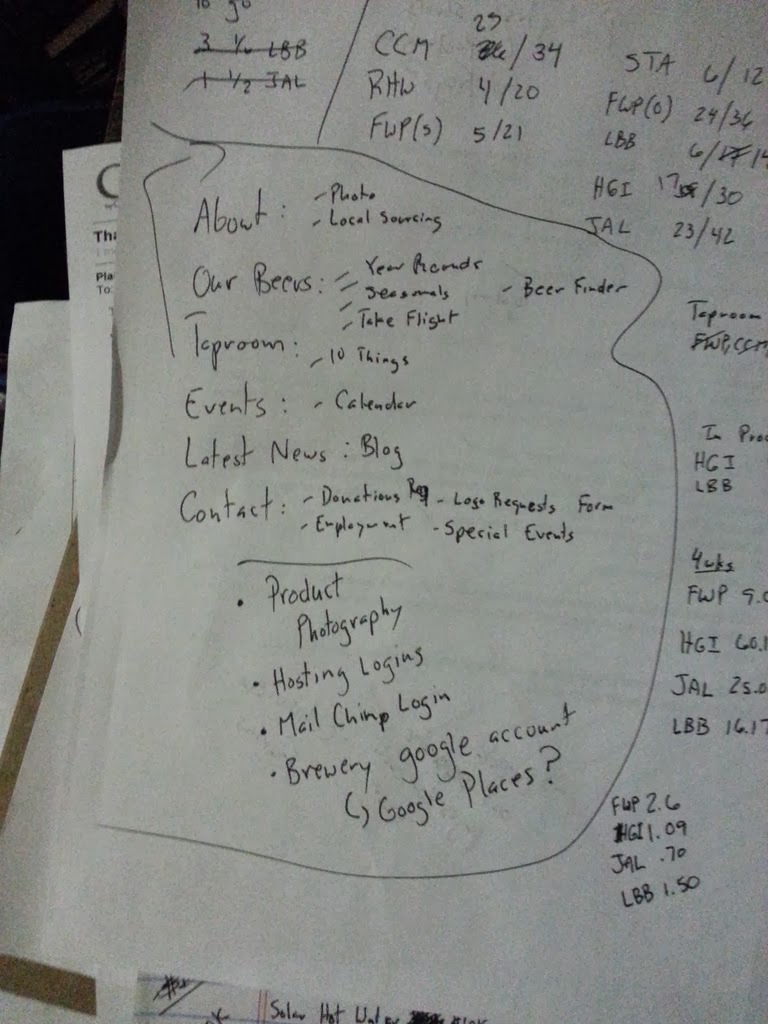 to go
3 1/6 LBB
1 1/2 JAL
29
CCM /34
RHW 4/20
FWP(s) 5/21
STA 6/12
FWP(o) 24/36
LBB 6/
HGI 17/30
JAL 23/42
About : - Photo
- Local Sourcing
Our Beers : - Year Rounds
- Seasonals - Beer Finder
- Take Flight
Taproom : - 10 Things
Events : - Calendar
Latest News : Blog
Contact : - Donations Req - Logo Requests Form
- Employment - Special Events
• Product
Photography
• Hosting Logins
• Mail Chimp Login
• Brewery google account
Google Places?
Taproom
FWP, CCM
In Proc
HGI
LBB
4wks
FWP 9.0
HGI 60.1
JAL 25.0
LBB 16.17
FWP 2.6
HGI 1.09
JAL .70
LBB 1.50
Tha
Pla
To
Solar Hot Water